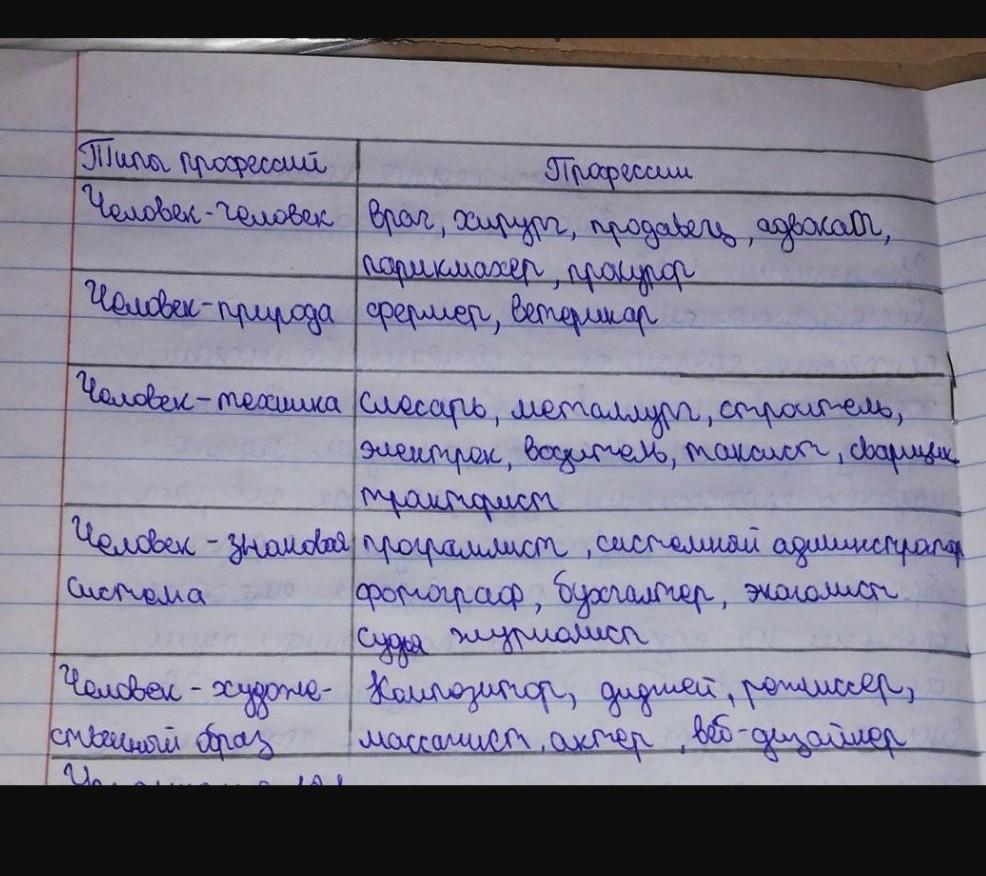 Типы профессий Профессии
Человек-человек врач, хирург, продавец, адвокат,
парикмахер, прокурор
Человек-природа фермер, ветеринар
Человек-техника слесарь, металлург, строитель,
электрик, водитель, таксист, сварщик
тракторист
Человек - знаковая программист, системный администратор
система фотограф, бухгалтер, экономист
судья журналист
Человек - художе- Композитор, диджей, режиссер,
ственный образ массажист, актер, веб-дизайнер